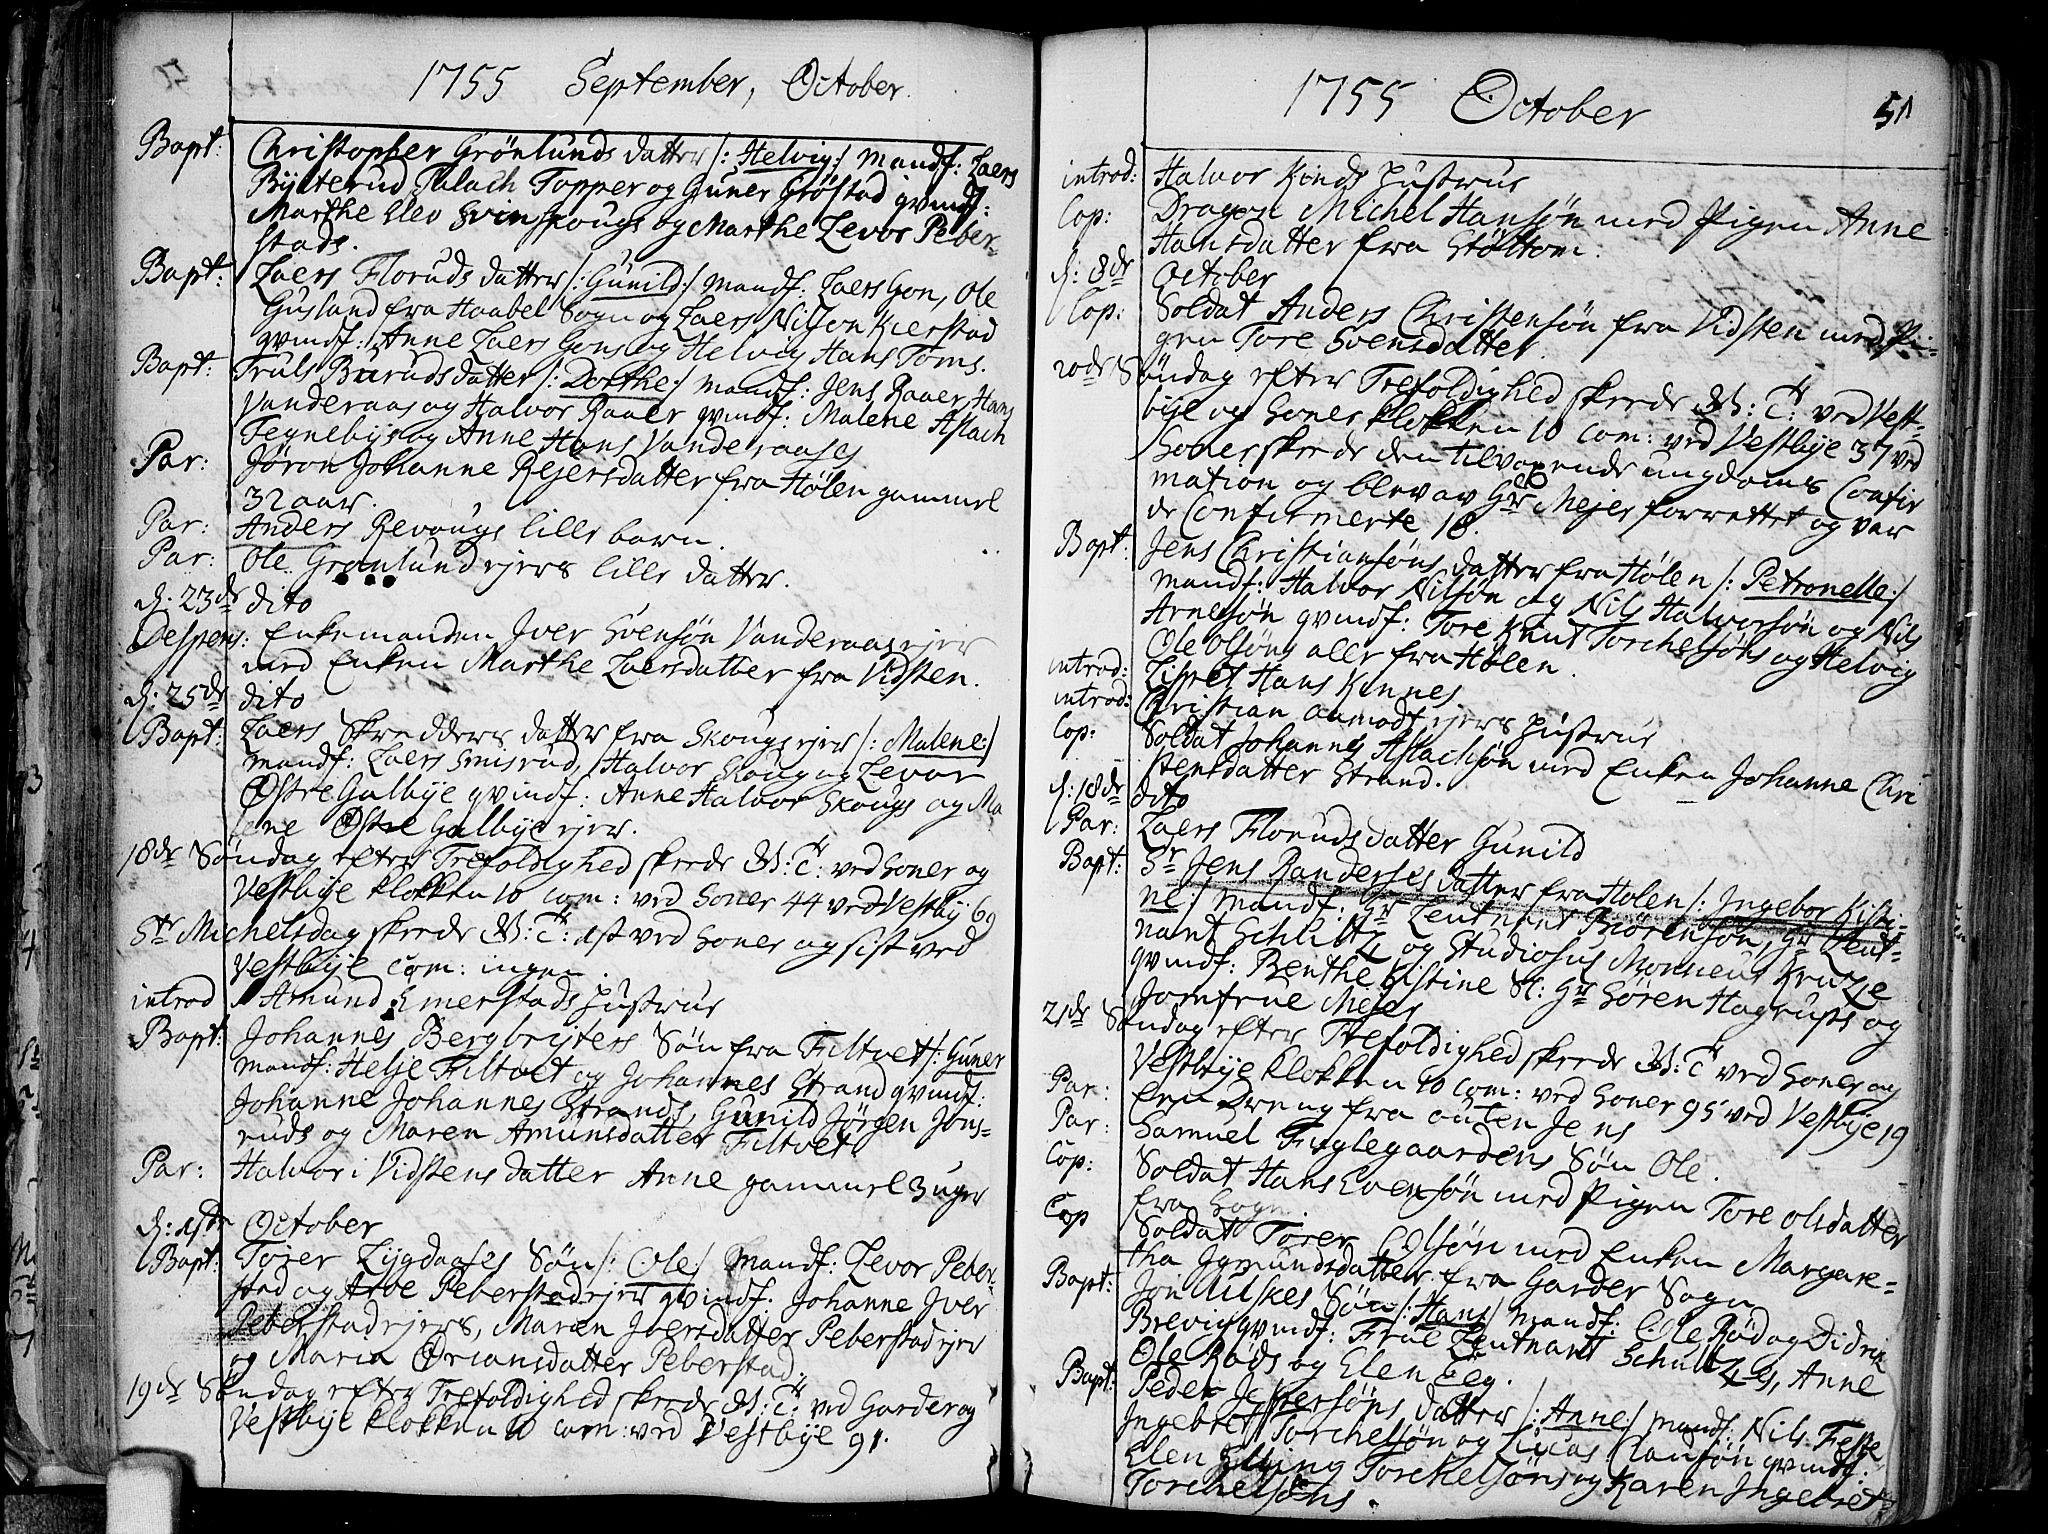 1755 September, October.
Bapt: Christopher Grönlunds datter /: Helvig :/ mandf: Laers
Bÿlterud Palach Topper og Guner Gröstad qvindf:
Marthe Elev Svinskougs og Marthe Levor Peber-
stads.
Bapt: Laers Floruds datter /: Gunild :/ mandf: Laers Gon, Ole
Gusland fra Haabel Sogn og Laers Nilson Kierstad
qvindf: Anne Laers Gons og Helvig Hans Toms.
Bapt: Truls Bruruds datter /: Dorthe :/ mandf: Jens Raaer, Hans
Vanderaas og Halvor Raaer qvindf: Malene Aslach
Tegnebye og Anne Hans Vanderaases
Par: Jöron Johanne Rejersdatter fra Hölen gammel
32 aar.
Par: Anders Revougs lille barn.
Par: Ole Grönlundejers lille datter.
d: 23de dito
Despens: Enkemanden Jver Svensön Vanderaasejer
med Enken Marthe Laersdatter fra Vidsten.
d: 25de dito
Bapt: Laers Skredders datter fra Skougsejer /: Malene :/
mandf: Laers Smisrud, Halvor Skoug og Levor
Østre Galbye qvindf: Anne Halvor Skougs og Ma
lene Østre Galbyeejer.
18de Söndag efter Trefoldighed skeede G: T: ved Soner og
Vestbye klokken 10 com: ved Soner 44 ved Vestbÿ 69
Sts Michelsdag skeede G: T: 1st ved Soner og sist ved
Vestbye com: ingen.
introd Amund Emerstads hustrue
Bapt: Johannes Bergbrÿters Sön fra Filtvet /: Guner
mandf: Helje Filtvet og Johannes Strand qvindf:
Johanne Johannes Strands, Gunild Jörgen Jons-
ruds og Maren Amunsdatter Filtvet
Par: Halvor i Vidstens datter Anne gammel 3 uger
d: 1ste October
Bapt: Torer Lÿgdaases Sön /: Ole :/ mandf: Levor Peber-
stad og Arve Peberstadejer qvindf: Johanne Jver
Peberstadejers, Maren Joersdatter Peberstadejer
og Maria Ørjansdatter Peberstad.
19de Söndag efter Trefoldighed skeede G: T: ved Garder og
Vestbye klokken 10 com: ved Vestbye 91.
1755 October
51
introd: Halvor Kinds hustrue
Cop: Dragon Michel Hansön med Pigen Anne
Hansdatter fra Stöltom.
d: 8de October
Cop: Soldat Anders Christensön fra Vidsten med Pi-
gen Tore Svensdatter.
20de Söndag efter Trefoldighed skeede G: T: ved Vest-
bye og Soner klokken 10 com: ved Vestbye 37 ved
Soner skeede den tilvoxende ungdoms Confir
mation og blev av Hr Mejer forrettet og var
de Confirmerte 18.
Bapt: Jens Christiansöns datter fra Hölen /: Petronelle :/
mandf: Halvor Nilsön og Nils Halvorsön og Nils
Arnesön qvindf: Tore Knut Torchelsöns og Helvig
Ole Olsöns alle fra Hölen.
introd: Lispet Hans Kinnes
introd: Christian anmodtejers hustrue
Cop: Soldat Johannes Aslachsön med Enken Johanne Chri
stensdatter Strand.
d: 18de dito
Par: Laers Floruds datter Gunild
Bapt: Sr Jens Randerses datter fra Hölen /: Ingebor Kisti-
ne :/ mandf: Hr Leutnant Biörensön, Hr Leut-
nant Schlütz og Studiosus Monsieur Kruze
qvindf: Benthe Kistine Sl: Hr Sören Hagrups og
Jomfrue Mejer
21de Söndag efter Trefoldighed skeede G: T: ved Soner og
Vestbye klokken 10 com: ved Soner 95 ved Vestbye 19
Par: Een dreng fra outen Jens
Par: Samuel Fuglegaardens Sön Ole.
Cop: Soldat Hans Evensön med Pigen Tore Olsdatter
fra Sogn
Cop Soldat Torer Olsön med Enken Margare-
tha Jgmundsdatter fra Garder Sogn
Bapt: Jon Aulskes Sön /: Hans :/ mandf: Ole Röd og Didrik
Brevig qvindf: Frue Leutnant Schultzes, Anne
Ole Röds og Elen Eeg.
Bapt: Peder Jespersöns datter /: Anne :/ mandf: Nils Feste
Ingebret Torchelsön og Lucas Clausön qvindf:
Elen Elling Torchelsöns og Karen Ingebret
Torchelsöns.